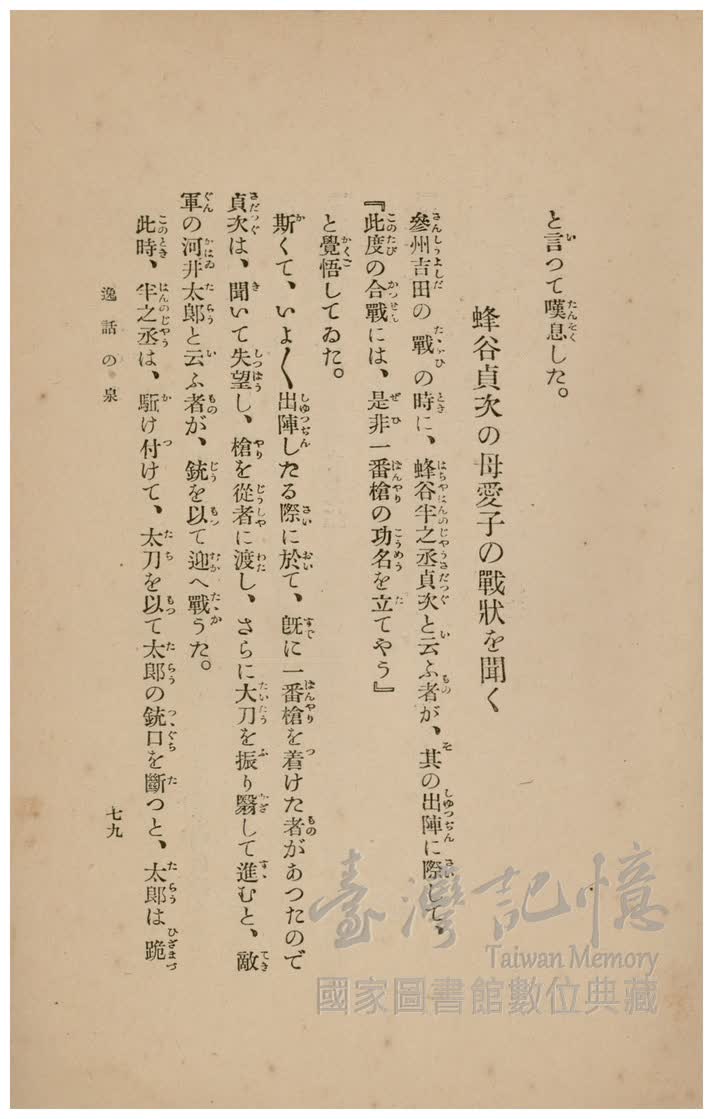 と言つて嘆息した。
蜂谷貞次の母愛子の戰狀を聞く
參州吉田の戰の時に、蜂谷半之丞貞次と云ふ者が、其の出陣に際して、
『此度の合戰には、是非一番槍の功名を立てやう』
と覺悟してゐた。
斯くて、いよ〳〵出陣したる際に於て、旣に一番槍を着けた者があつたので
貞次は、聞いて失望し、槍を從者に渡し、さらに大刀を振り翳して進むと、敵
軍の河井太郎と云ふ者が、銃を以て迎へ戰うた。
此時、半之丞は、駈け付けて、太刀を以て太郎の銃口を斷つと、太郎は跪
逸話の泉
七九
臺灣記憶
Taiwan Memory
國家圖書館數位典藏